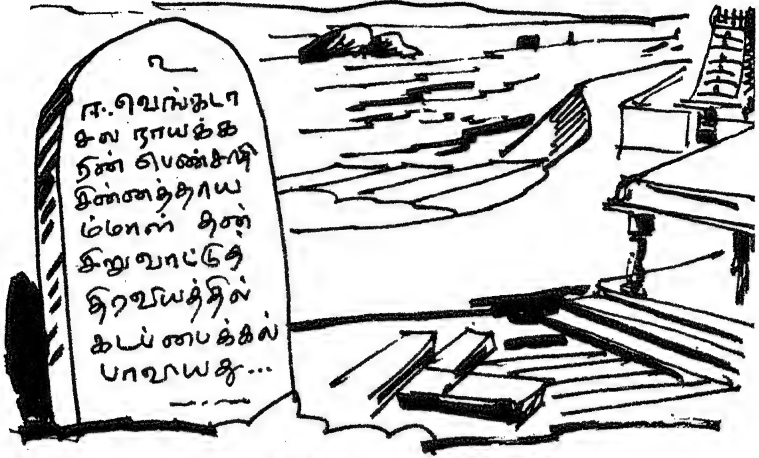 உ
ஈ.வெங்கடா
சல நாயக்க
நின் பெண்சாதி
சின்னத்தாய
ம்மாள் தன்
சிறுவாட்டுத்
திரவியத்தில்
கடப்பைக்கல்
பாவியது...